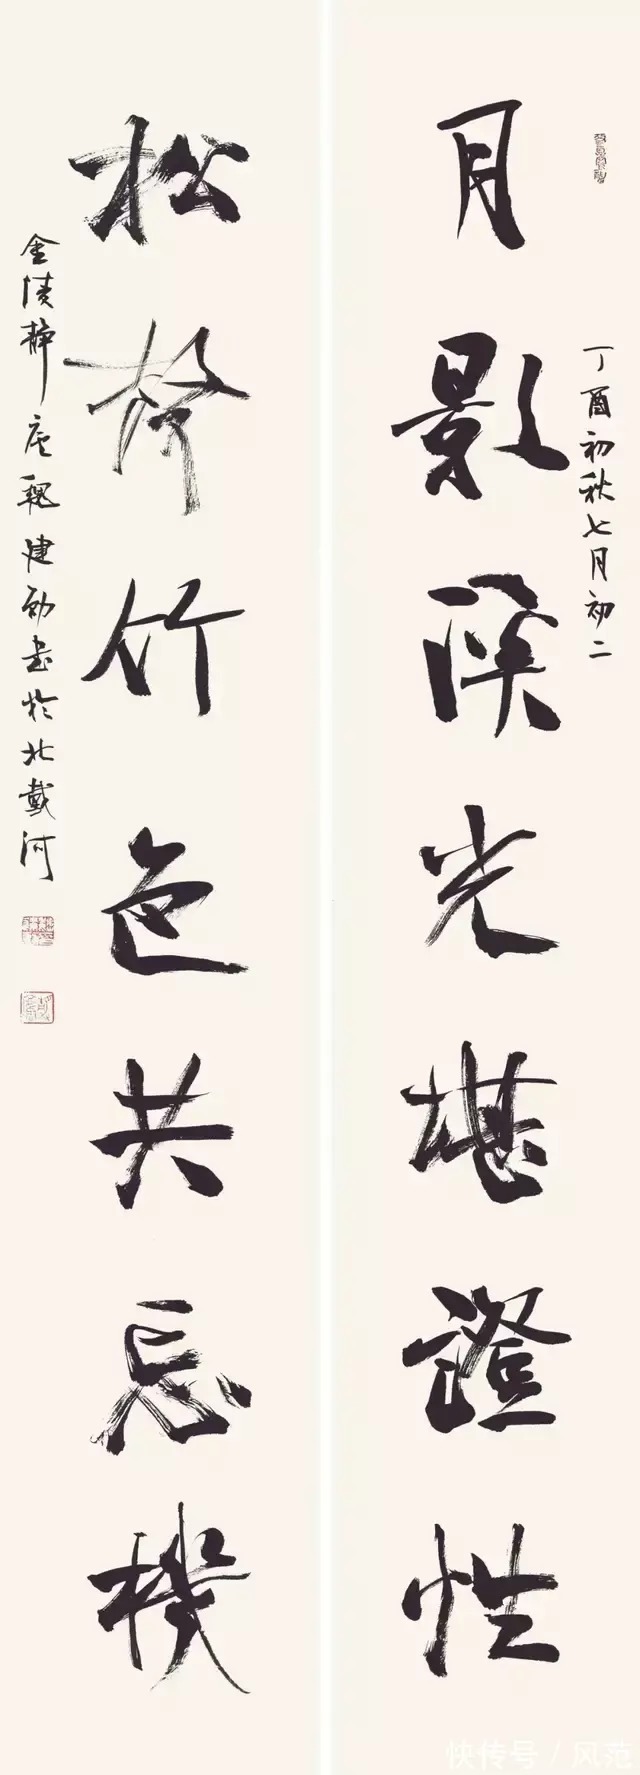 月影溪光堪證性
丁酉初秋七月初二
松聲竹色共忘機
金陵靜魏建書於北戴河
快传号/风范